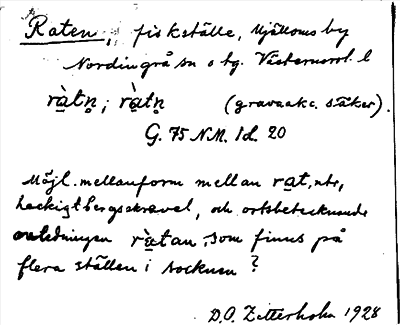 Raten, fiskställe, Mjälloms by
Nordingrå sn o tg. Västernorrl. l
ràtn̥; ràtn̥ (gravaakc. säker).
G. 75 N.M. 1d. 20
Möjl. mellanform mellan rat, ntr,
bergskrevel, och ortsbetecknande
avledningen ràtan, som finns på
flera ställen i socknen?
D.O. Zetterholm 1928